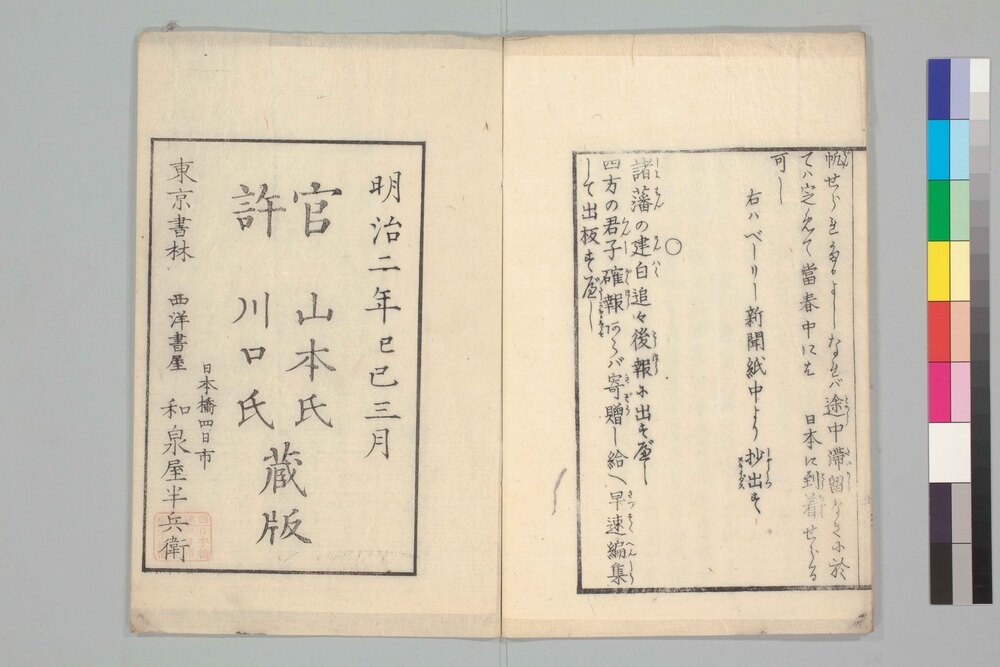 帆せられたるよしなれバ途中滞留なきに於
てハ定めて當春中には 日本に到着せらる
可し
右ハベーリー新聞紙中より抄出す
○
諸藩の建白追々後報に出すべし
四方の君子確報あらバ寄贈し給へ早速編集
して出板すべし
明治二年己巳三月
官許
山本氏
川口氏
蔵版
東京書林 西洋書屋
日本橋四日市
和泉屋半兵衛